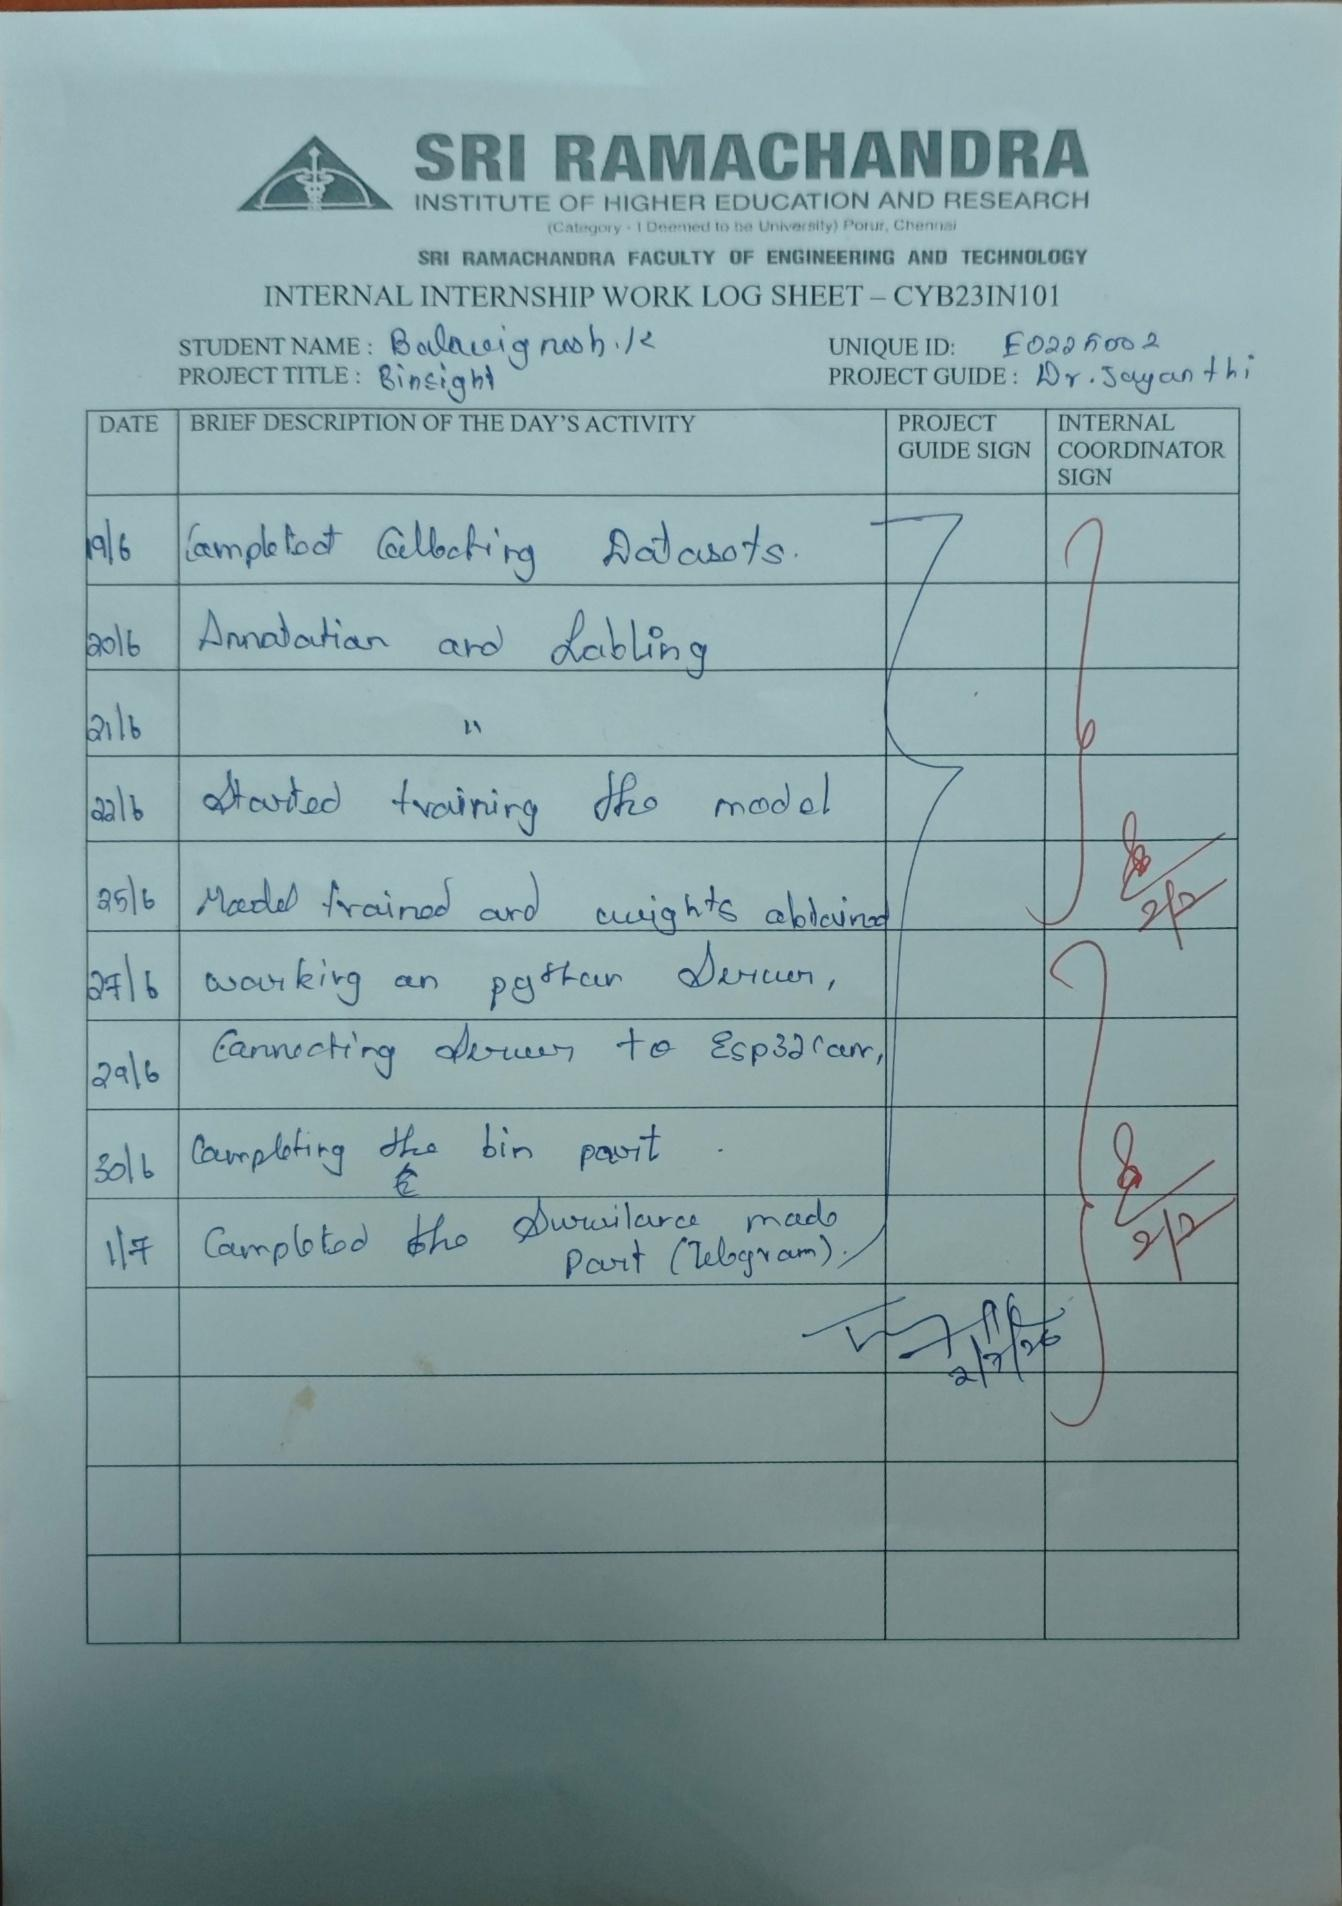 SRI RAMACHANDRA
INSTITUTE OF HIGHER EDUCATION AND RESEARCH
(Category - I Deemed to be University) Porur, Chennai
SRI RAMACHANDRA FACULTY OF ENGINEERING AND TECHNOLOGY
INTERNAL INTERNSHIP WORK LOG SHEET – CYB23IN101
STUDENT NAME : Balavignesh.K UNIQUE ID:
PROJECT TITLE : Binsight PROJECT GUIDE : Dr. Jayanthi
DATE BRIEF DESCRIPTION OF THE DAY'S ACTIVITY PROJECT GUIDE SIGN INTERNAL COORDINATOR SIGN
19/6 Completed Collecting Datasets.
20/6 Annotation and Labling
21/6 "
22/6 Started training the model
25/6 Model trained and weights obtained
27/6 working on python Server,
29/6 Connecting Server to Esp32cam,
30/6 Completing the bin part
1/7 Completed the Survilance mode
part (Telegram).
2/7
2/7
2/7/26